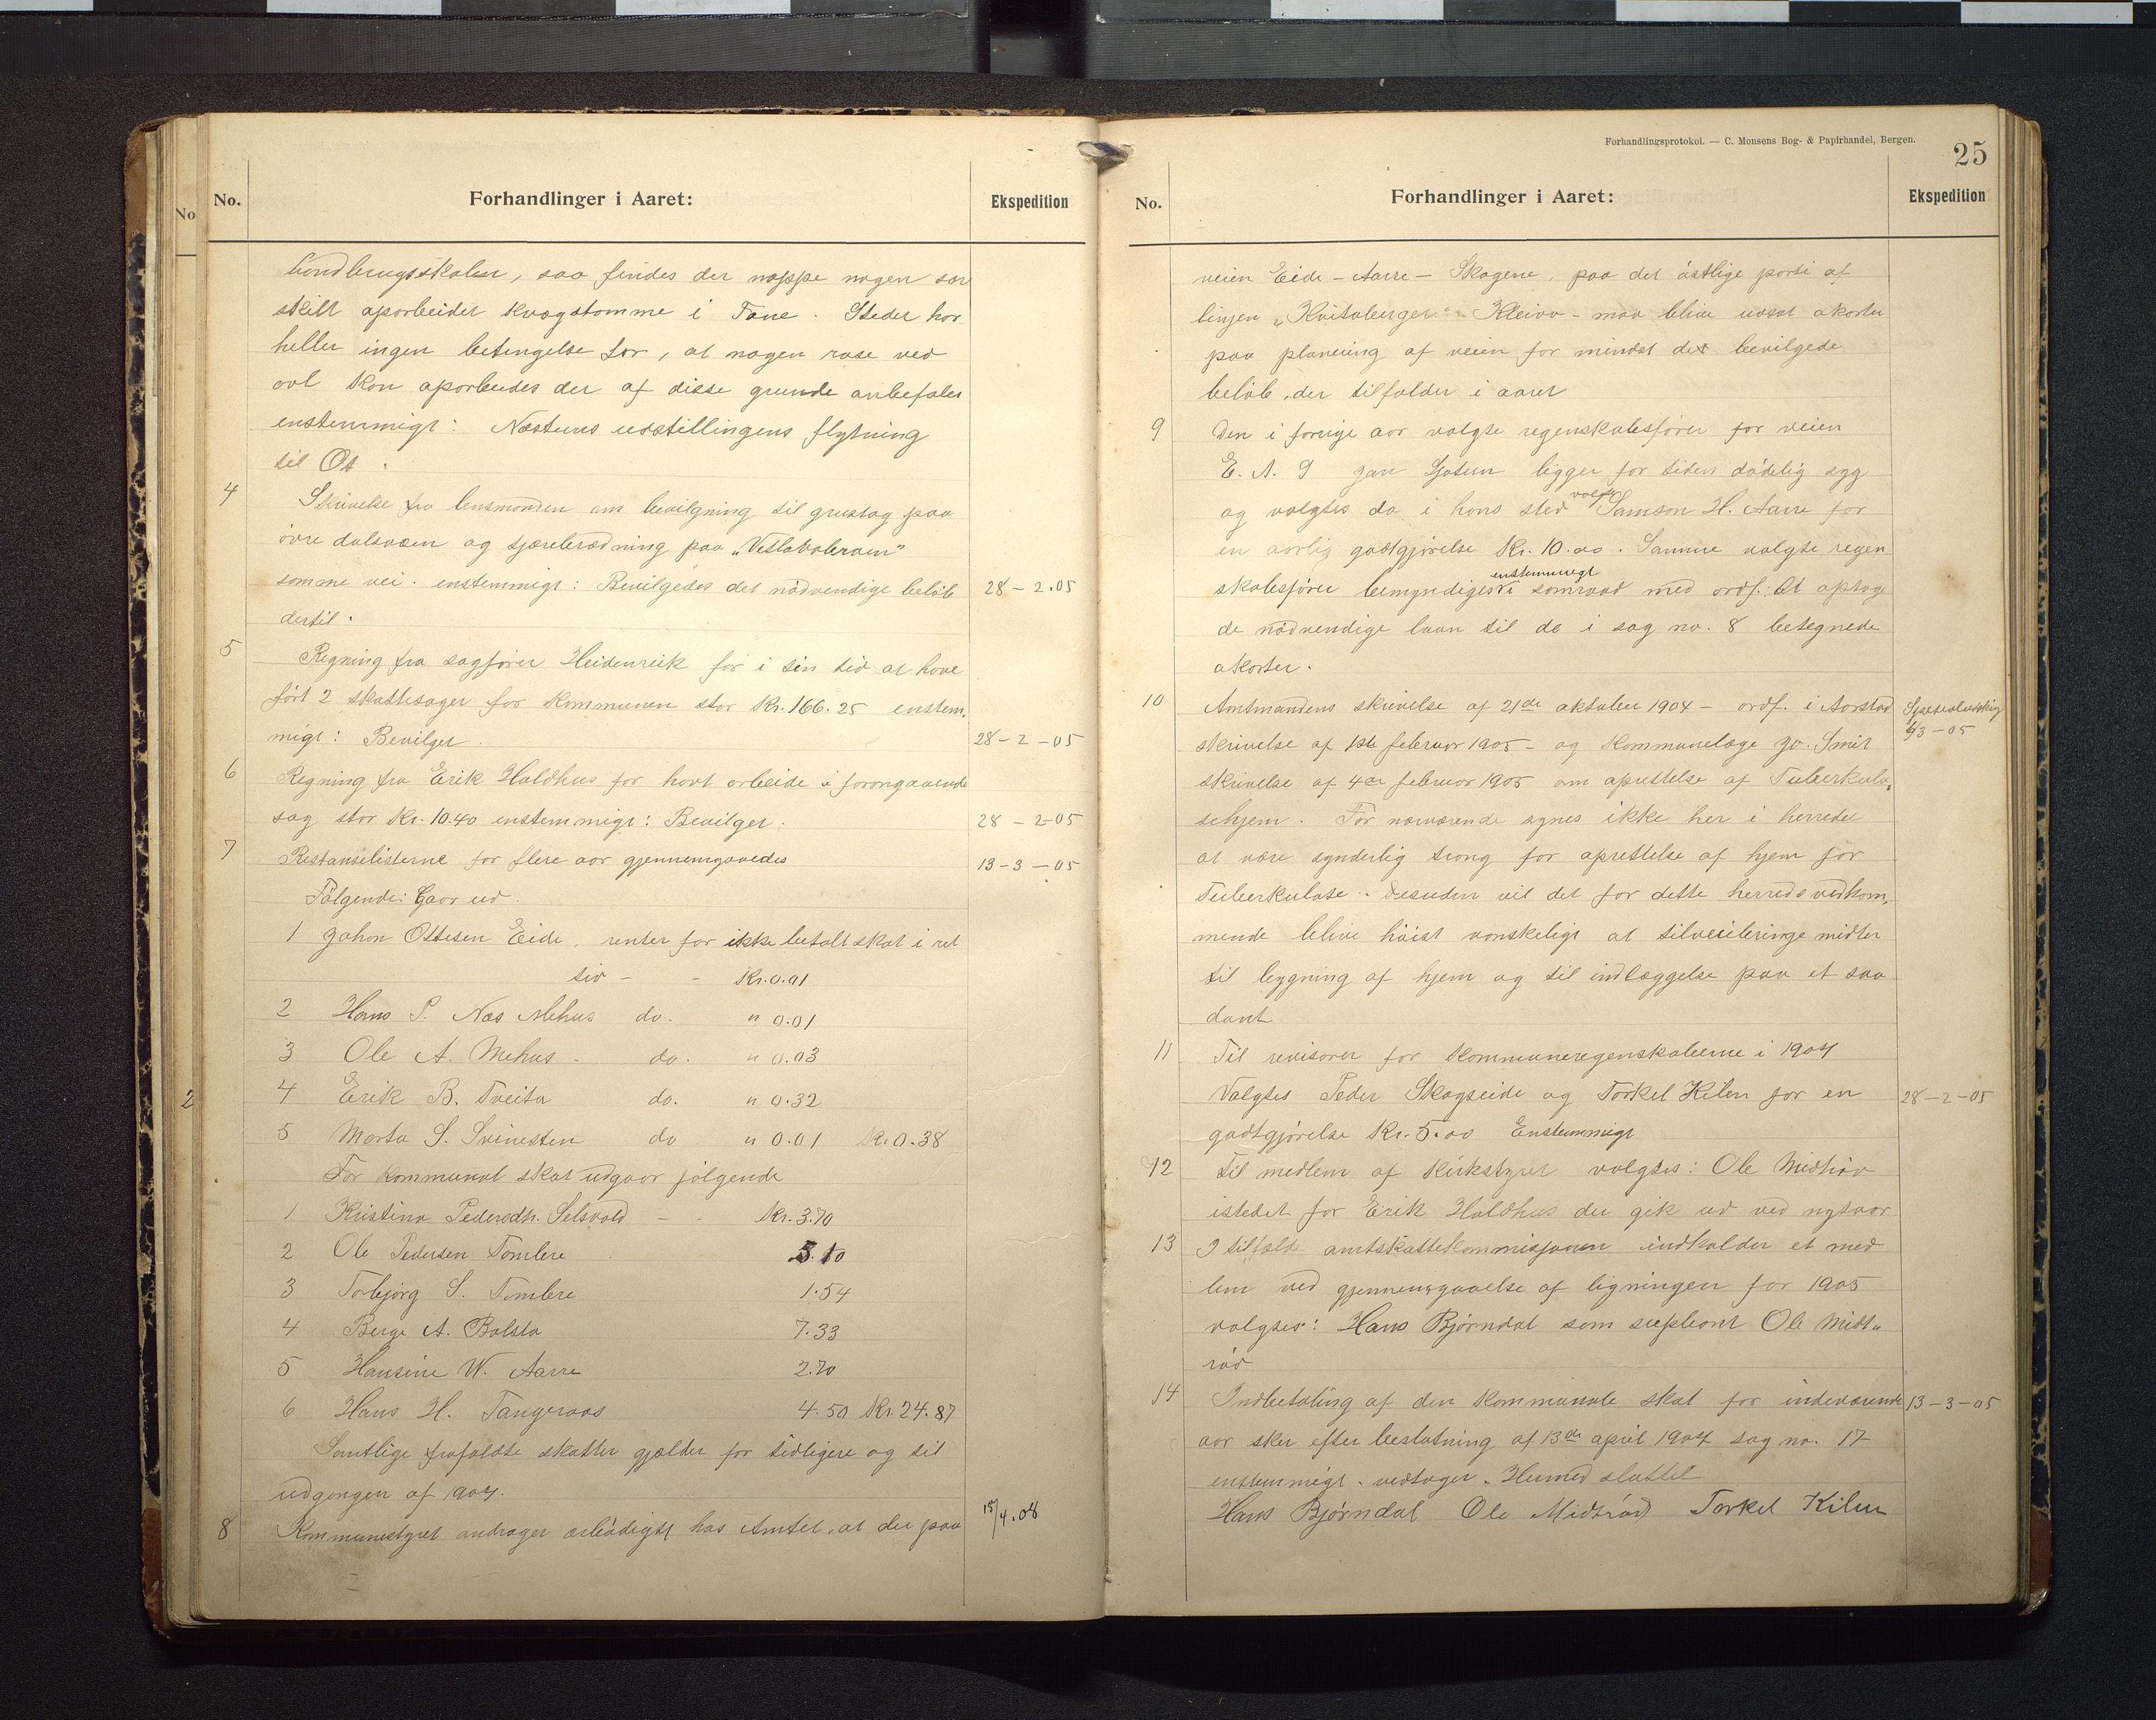 No.
Forhandlinger i Aaret:
Ekspedition
No
landbrugsskolen, saa findes der neppe nogen sær
skilt oparbeidet kvægstamme i Fane. Stedet har
heller ingen betingelse for, at nogen rase ved
avl kan oparbeides der af disse grunde anbefales
enstemmigt: Næstuns udstillingens flytning
til Os.
4 Skrivelse fra lensmanden om bevilgning til grustag paa
övre dalsveien og tjærebrædning paa „Vetlaboleraen"
samme vei. enstemmigt: Bevilgedes det nödvendige belöb 28-2.05
dertil.
5 Regning fra sagförer Heidenreik for i sin tid at have
fört 2 skattesager for kommunen stor Kr. 166.25 enstem.
migt: Bevilget. 28-2-05
6 Regning fra Erik Holdhus for havt arbeide i forangaaende
sag stor Kr. 10.40 enstemmigt: Bevilget. 28-2-05
7 Restanselisterne for flere aar gjennemgaaedes 13-3-05
Fölgende: Gaar ud.
1 Johan Ottesen Eide. renter for ikke betalt skat i ret
tid - - Kr. 0.01
2 Hans P. Næs Mehus do. " 0.01
3 Ole A. Mehus. do. " 0.03
2
4 Erik B. Tveita do. " 0.32
5 Marta S. Svinesten do " 0.01 Kr. 0.38
For kommunal skat udgaar fölgende
1 Kristina Pedersdtr. Selsvold - - Kr. 3.70
2 Ole Pedersen Tombre 5.10
3 Torbjörg S. Tombre 1.54
4 Berge A. Bolsta 7.33
5 Hansine W. Aarre 2.70
6 Hans H. Tangeraas 4.50 Kr. 24.87
Samtlige frafaldte skatter gjælder for tidligere og til
udgangen af 1904.
8 Kommunestyret andrager ærbödigst hos Amtet, at der paa 15/4.08
Forhandlingsprotokol. — C. Monsens Bog- & Papirhandel, Bergen.
25
No.
Forhandlinger i Aaret:
Ekspedition
veien Eide - Aarre - Skogene. paa det östlige parti af
linjen „Kvitaberget" Kleiva - maa blive udsat akorter
paa planering af veien for mindst det bevilgede
belöb, der tilfalder i aaret
9 Den i forrige aar valgte regenskabsförer for veien
E. A. S Jan Gjøtun ligger for tiden dödelig syg
og valgtes da i hans sted valgte Samson H. Aarre for
en aarlig godtgjörelse Kr. 10.00. Samme valgte regen
skabsförer bemyndiges enstemmigt i samraad med ordf. at optage
de nödvendige laan til de i sag no. 8 betegnede
akorter.
10 Amtmandens skrivelse af 21de oktober 1904 - ordf. i Aarstad
skrivelse af 1ste februar 1905 - og kommunelæge Jo. Smit 4/3-05
skrivelse af 4de februar 1905 om oprettelse af Tuberkulo,
sehjem. For nærværende synes ikke her i herredet
at være synderlig trang for oprettelse af hjem for
Tuberkulose. Desuden vil det for dette herreds vedkom,
mende blive höist vanskeligt at tilveiebringe midler
til bygning af hjem og til indlæggelse paa et saa
dant
11 Til revisorer for kommuneregenskaberne i 1904
Valgtes Peder Skogseide og Torkel Kilen for en 28-2-05
godtgjörelse Kr. 5.00 Enstemmigt
12 Til medlem af Kirkstyret valgtes: Ole Midtröd
istedet for Erik Holdhus der gik ud ved nytaar
13 I tilfælde amtskattekommisjonen indkalder et med
lem ved gjennemgaaelse af ligningen for 1905
valgtes: Hans Bjørndal som supleant Ole Midt„
röd
14 Indbetaling af den kommunale skat for indeværende 13-3-05
aar sker efter beslutning af 13de april 1904 sag no. 17
enstemmigt. vedtaget. Hermed sluttet
Hans Bjørndal Ole Midtröd Torkel Kilen